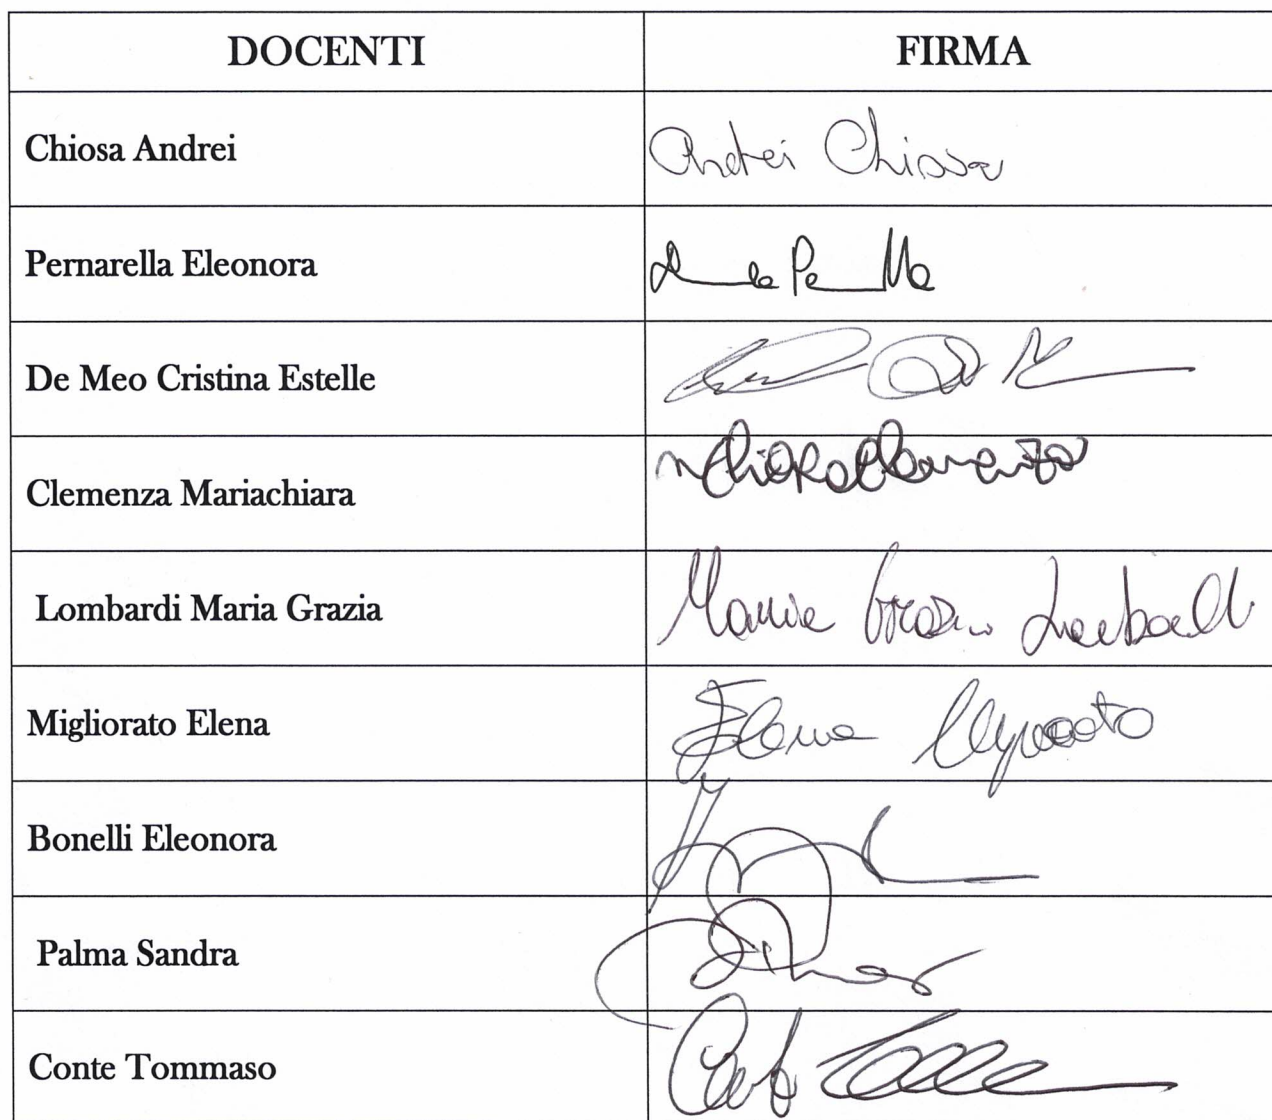 DOCENTI FIRMA
Chiosa Andrei Andrei Chiosa
Pernarella Eleonora
De Meo Cristina Estelle
Clemenza Mariachiara
Lombardi Maria Grazia Maria Grazia Lombardi
Migliorato Elena Elena
Bonelli Eleonora
Palma Sandra
Conte Tommaso